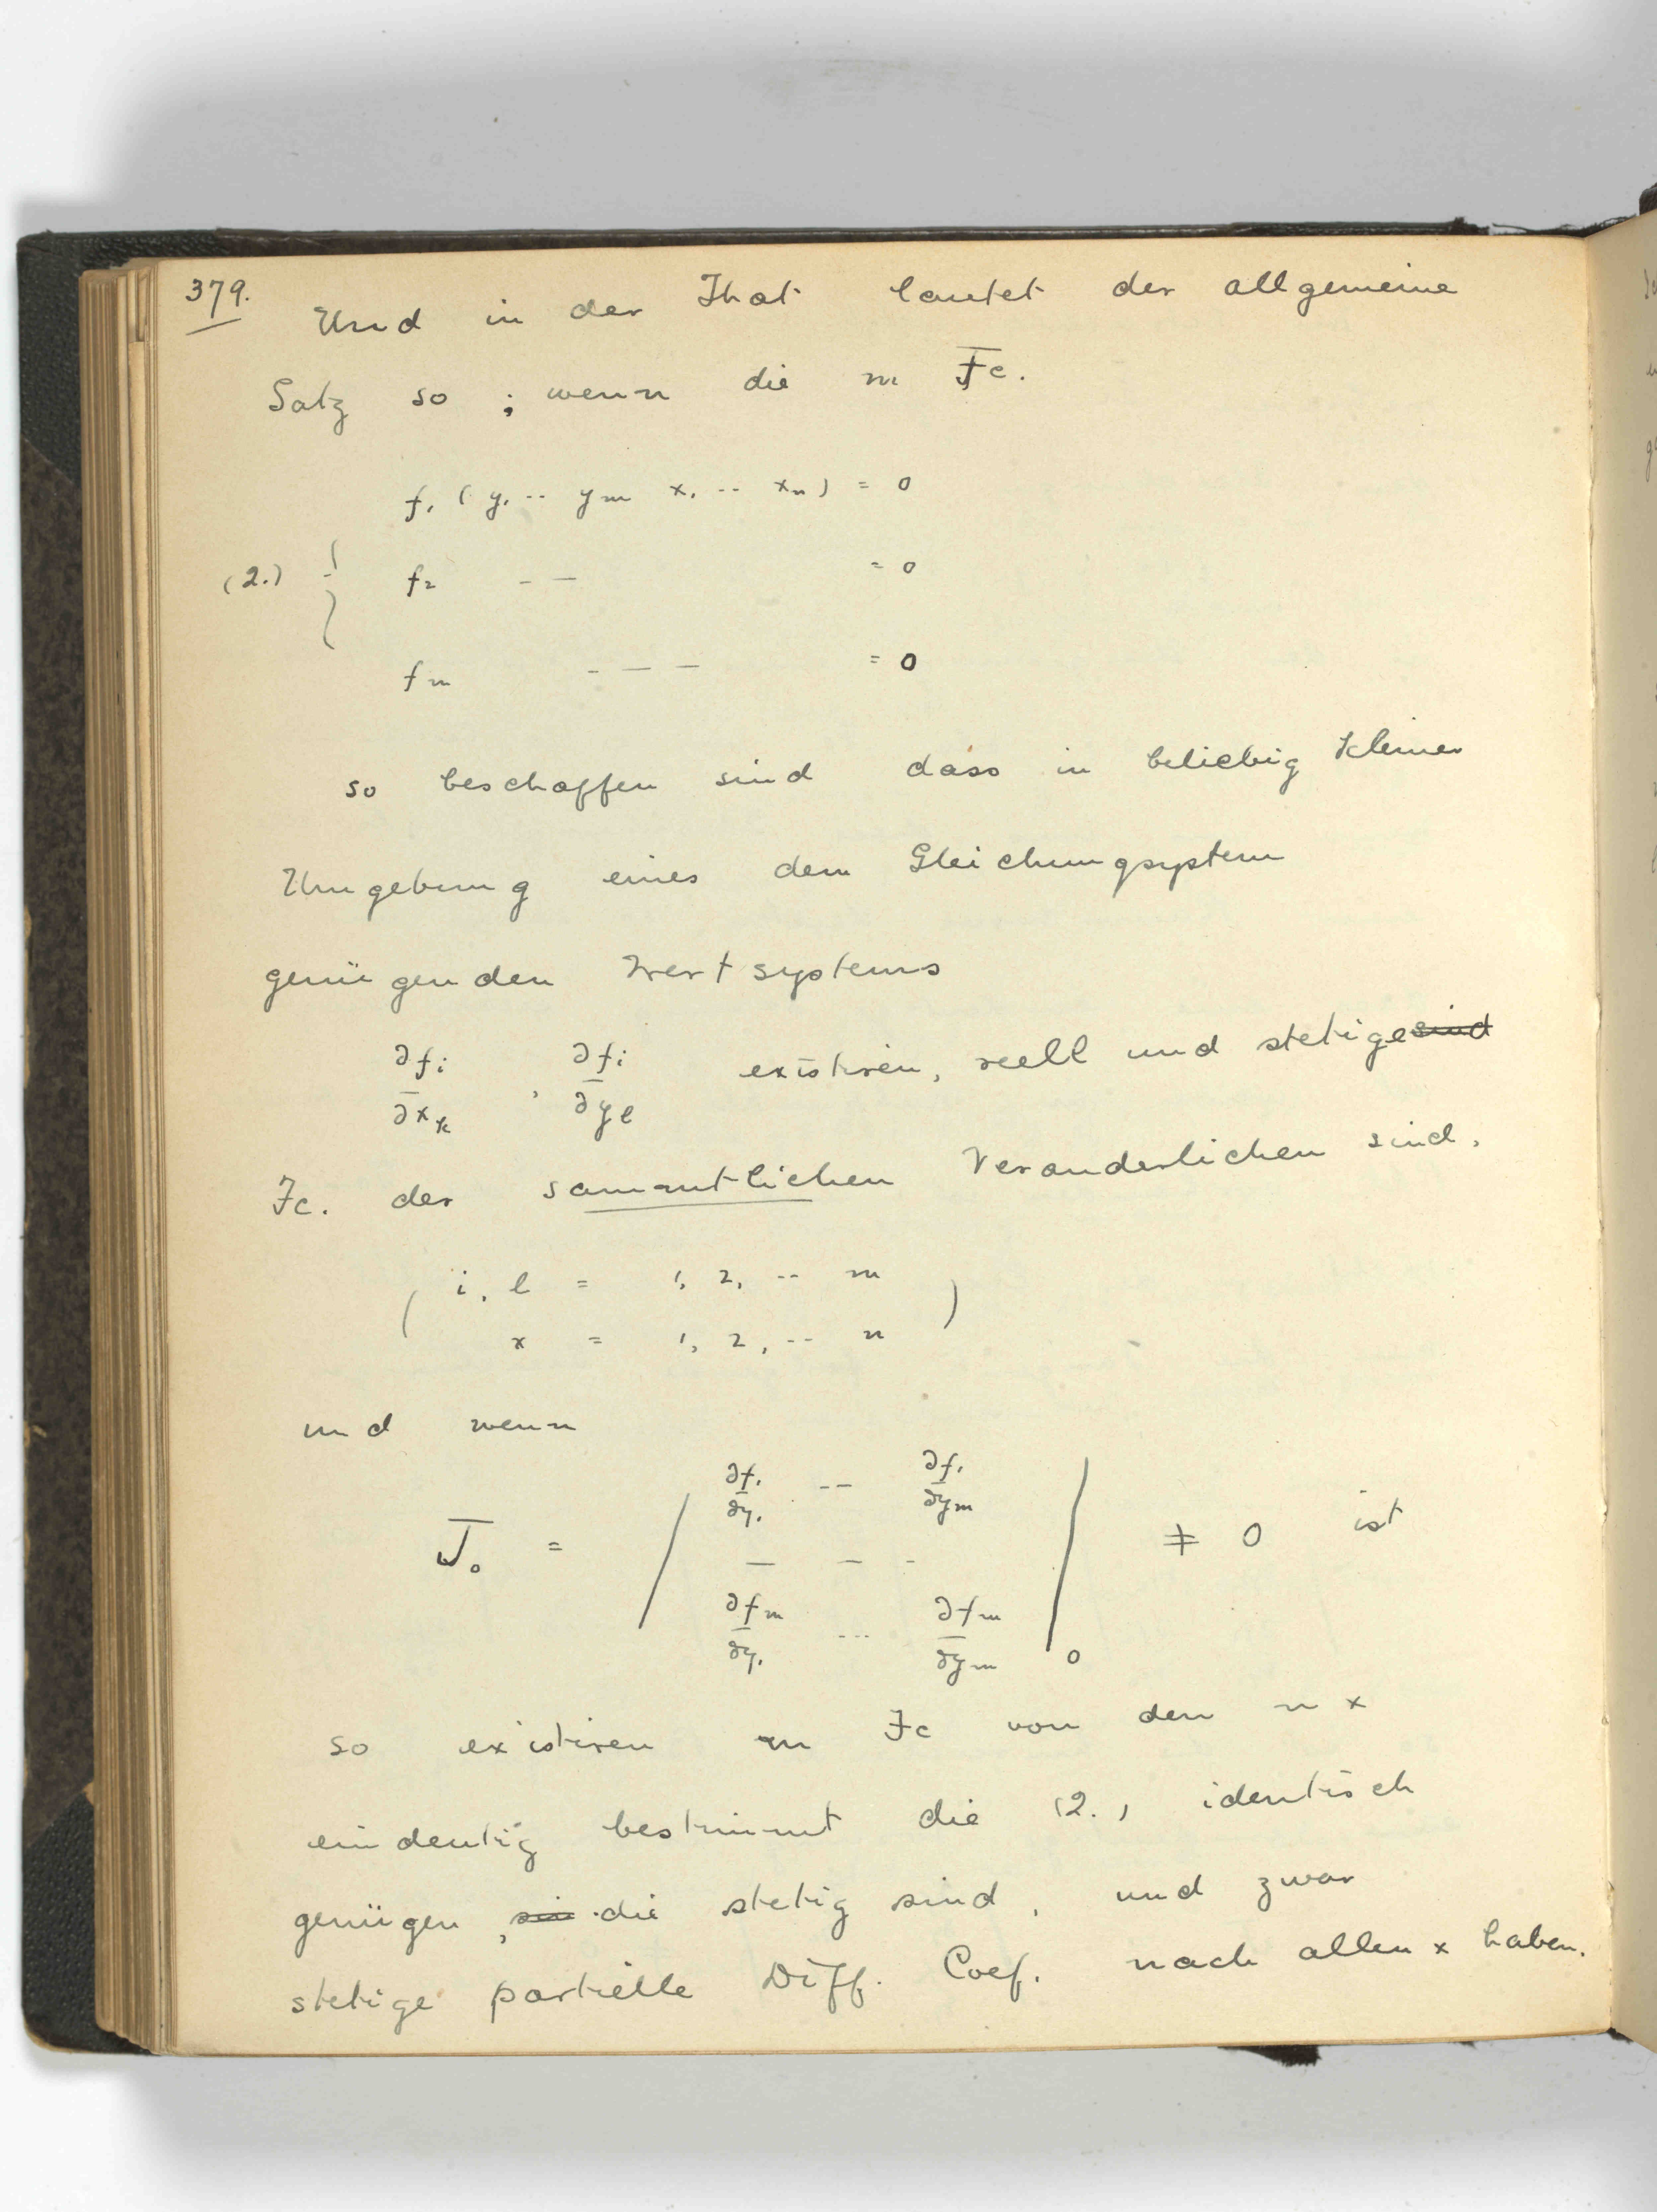 379.
Und in der That lautet der allgemeine
Satz so ; wenn die m Fc.
f₁ ( y₁ -- ym x₁ -- xn ) = 0
(2.) { f₂ - — = 0
fm - — — = 0
so beschaffen sind dass in beliebig kleiner
Umgebung eines dem Gleichungsystem
genügenden Wertsystems
∂fi/∂xk , ∂fi/∂yl existiren, reell und stetige ~~sind~~
Fc. der sammtlichen Veranderlichen sind.
( i, l = 1, 2, -- m
x = 1, 2, -- n )
und wenn
J₀ = | ∂f₁/∂y₁ -- ∂f₁/∂ym
— — -
∂fm/∂y₁ --- ∂fm/∂ym |₀ ≠ 0 ist
so existiren m Fc von den n x
eindeutig bestimmt die (2.) identisch
genügen , die stetig sind , und zwar
stetige partielle Diff. Coef. nach allen x haben.